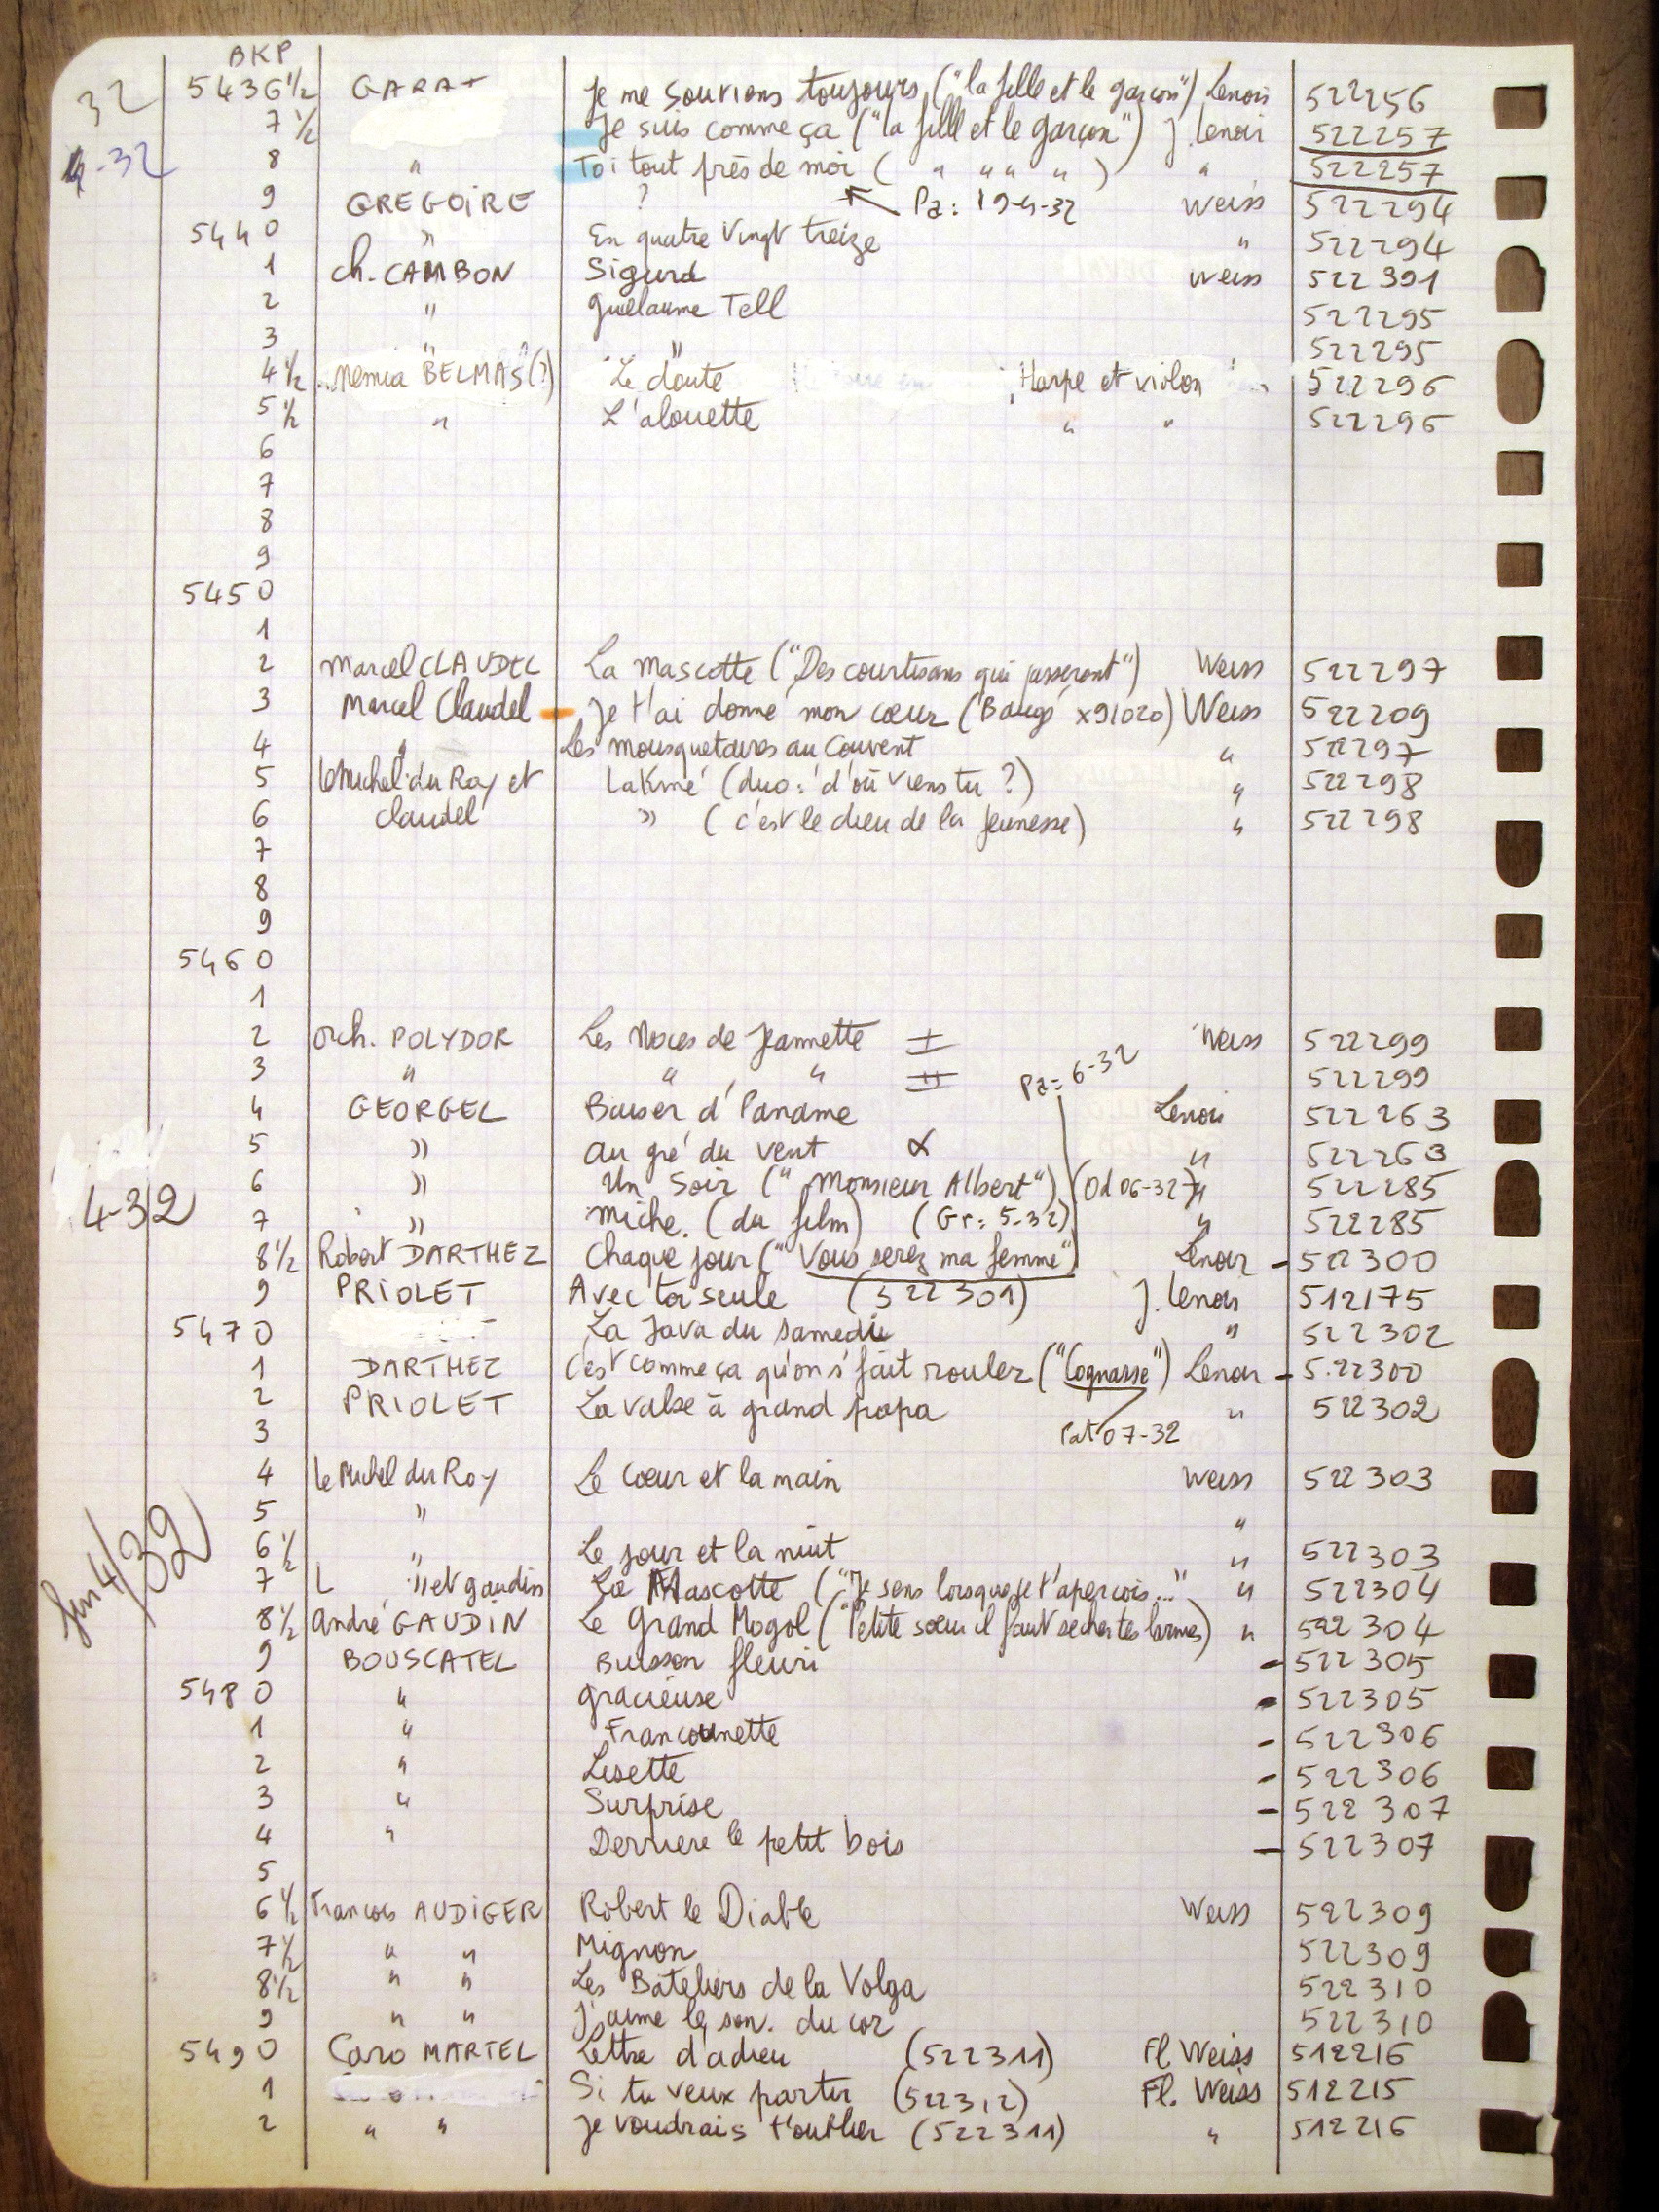 BKP
32 5436 1/2 GARAT Je me souviens toujours ("la fille et le garçon") Lenoir 522256
7 1/2 Je suis comme ça ("la fille et le garçon") J. Lenoir 522257
4-32 8 " Toi tout près de moi ( " " " " ) " 522257
9 GREGOIRE ? Pa: 19-4-32 Weiss 522294
5440 " En quatre vingt treize " 522294
1 ch. CAMBON Sigurd Weiss 522391
2 " Guillaume Tell 522295
3 " " 522295
4 1/2 ..nemia BELMAS(?) Le doute Harpe et violon 522296
5 1/2 " L'alouette " " 522296
6
7
8
9
5450
1
2 Marcel CLAUDEL La Mascotte ("Des courtisans qui passeront") Weiss 522297
3 Marcel Claudel Je t'ai donné mon cœur (Baugé x91020) Weiss 522209
4 " Les mousquetaires au couvent " 522297
5 le Michel du Roy et Lakmé (duo: d'où viens tu ?) " 522298
6 Claudel " (c'est le dieu de la jeunesse) " 522298
7
8
9
5460
1
2 Orch. POLYDOR Les Noces de Jeannette I Weiss 522299
3 " " " II 522299
Pa= 6-32
4 GEORGEL Baiser d'Paname Lenoir 522263
5 " Au gré du vent α " 522263
6 " Un Soir ("Monsieur Albert") (Od 06-32) " 522285
4-32 7 " Miche. (du film) (Gr: 5-32) " 522285
8 1/2 Robert DARTHEZ Chaque jour ("Vous serez ma femme") Lenoir - 522300
9 PRIOLET Avec toi seule (522301) J. Lenoir 512175
5470 La Java du samedi " 522302
1 DARTHEZ C'est comme ça qu'on s'fait rouler ("Cognasse") Lenoir - 522300
2 PRIOLET La valse à grand papa " 522302
3 Pat 07-32
4 le Michel du Roy Le cœur et la main Weiss 522303
5 " "
6 1/2 " Le jour et la nuit " 522303
4/32 7 L " et gaudin La Mascotte ("Je sens lorsque je t'aperçois..." " 522304
8 1/2 André GAUDIN Le Grand Mogol ("Petite sœur il faut sécher tes larmes) " 522304
9 BOUSCATEL Buisson fleuri - 522305
5480 " gracieuse - 522305
1 " Francounette - 522306
2 " Lisette - 522306
3 " Surprise - 522307
4 " Derriere le petit bois - 522307
5
6 1/2 Francois AUDIGER Robert le Diable Weiss 522309
7 1/2 " " Mignon 522309
8 1/2 " " Les Bateliers de la Volga 522310
9 " " J'aime le son. du cor 522310
5490 Caro MARTEL Lettre d'adieu (522311) Fl Weiss 512216
1 Si tu veux partir (522312) Fl. Weiss 512215
2 " " Je voudrais t'oublier (522311) " 512216